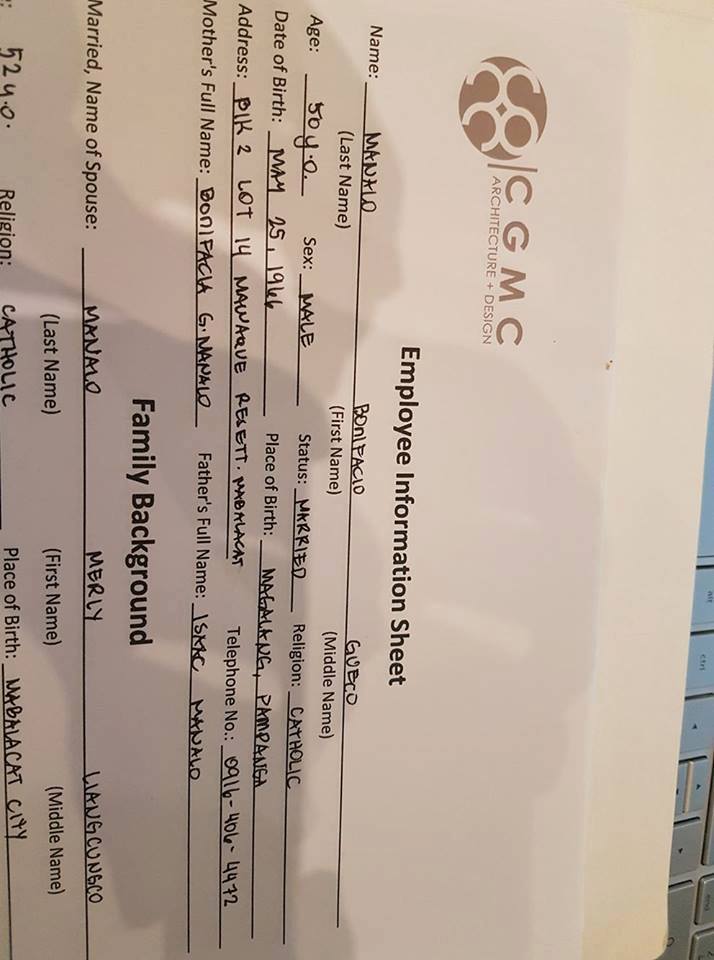 alt ctrl end
CGMC
ARCHITECTURE + DESIGN
Employee Information Sheet
Name: MANALO BONIFACIO GUECO
(Last Name) (First Name) (Middle Name)
Age: 50 y.o. Sex: MALE Status: MARRIED Religion: CATHOLIC
Date of Birth: MAY 25, 1966 Place of Birth: MAGALANG, PAMPANGA
Address: BlK 2 LOT 14 MAWAQUE RESETT. MABALACAT Telephone No.: 0916-406-4472
Mother's Full Name: BONIFACIA G. MANALO Father's Full Name: ISAAC MANALO
Family Background
Married, Name of Spouse: MANALO MERLY LIANGCUNGCO
(Last Name) (First Name) (Middle Name)
52 y.o. Religion: CATHOLIC Place of Birth: MABALACAT CITY